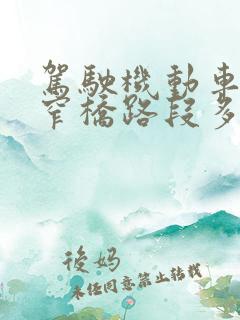 駕駛機動車
窄橋路段多
後媽
未任同意禁止轉載